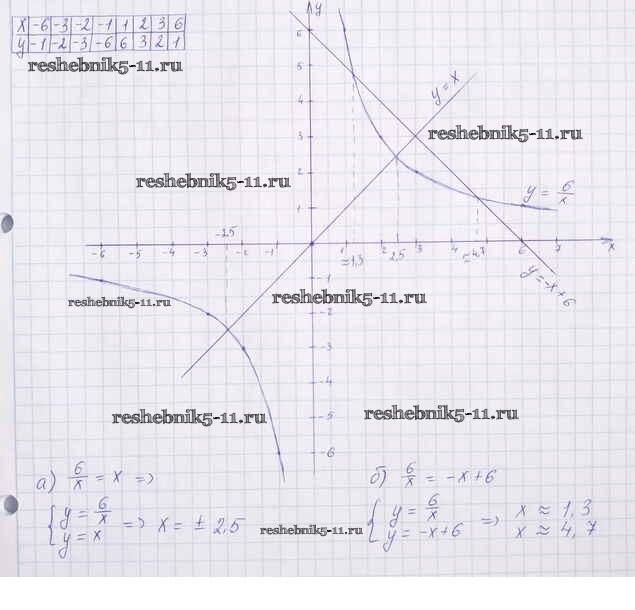 x -6 -3 -2 -1 1 2 3 6
y -1 -2 -3 -6 6 3 2 1
reshebnik5-11.ru
y
6
5
y = x
3
reshebnik5-11.ru
reshebnik5-11.ru
2
y = 6/x
1
-2,5
-6 -5 -4 -3 -2 -1 1 2 3 4 6 7 x
≈1,3 2,5 ≈4,7
y = -x + 6
-1
reshebnik5-11.ru
reshebnik5-11.ru
-2
-3
-4
reshebnik5-11.ru
reshebnik5-11.ru
-5
-6
а) 6/x = x =>
{ y = 6/x
y = x => x = ± 2,5
reshebnik5-11.ru
б) 6/x = -x + 6
{ y = 6/x
y = -x + 6 => x ≈ 1,3
x ≈ 4,7